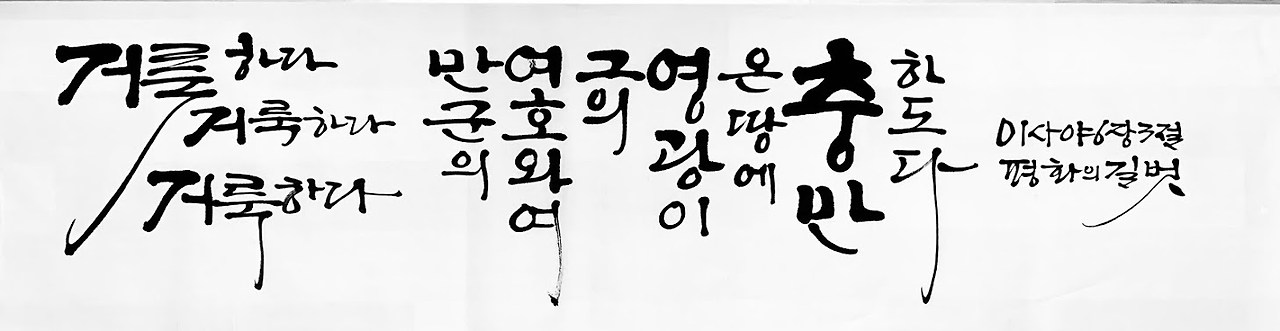 거룩하다
거룩하다
거룩하다
만군의
여호와여
그의
영광이
온땅에
충만
하도다
이사야6장3절
평화의길벗